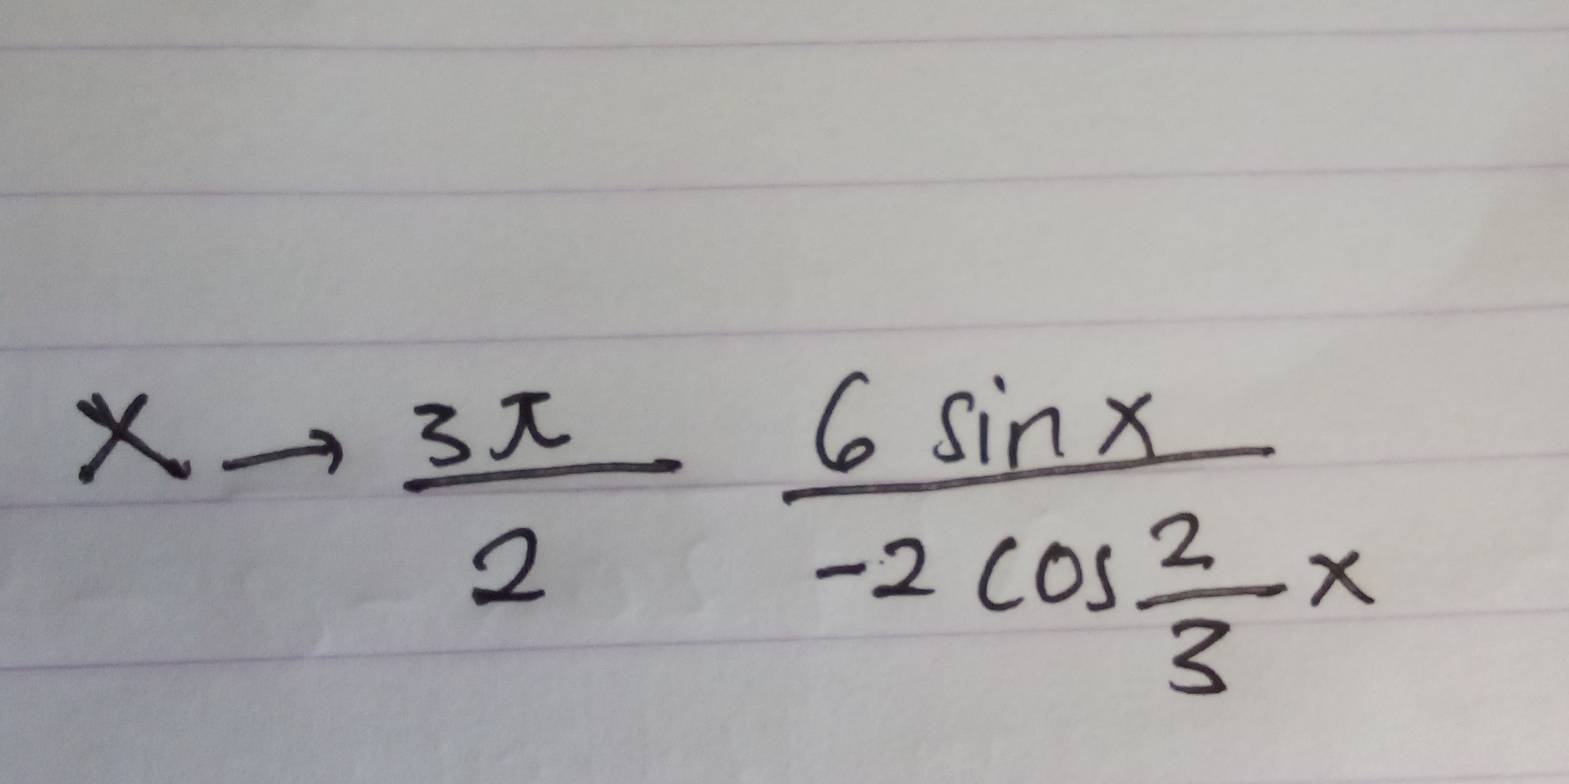 x → 3π/2 6 sin x / -2 cos 2/3 x